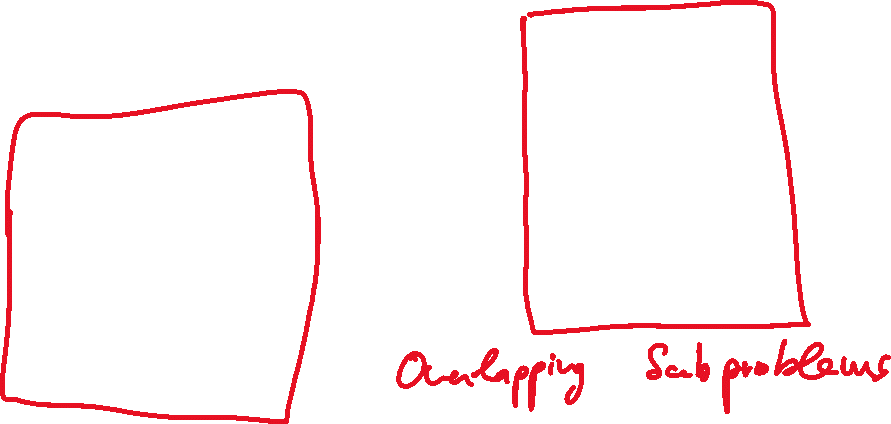 Overlapping Subproblems